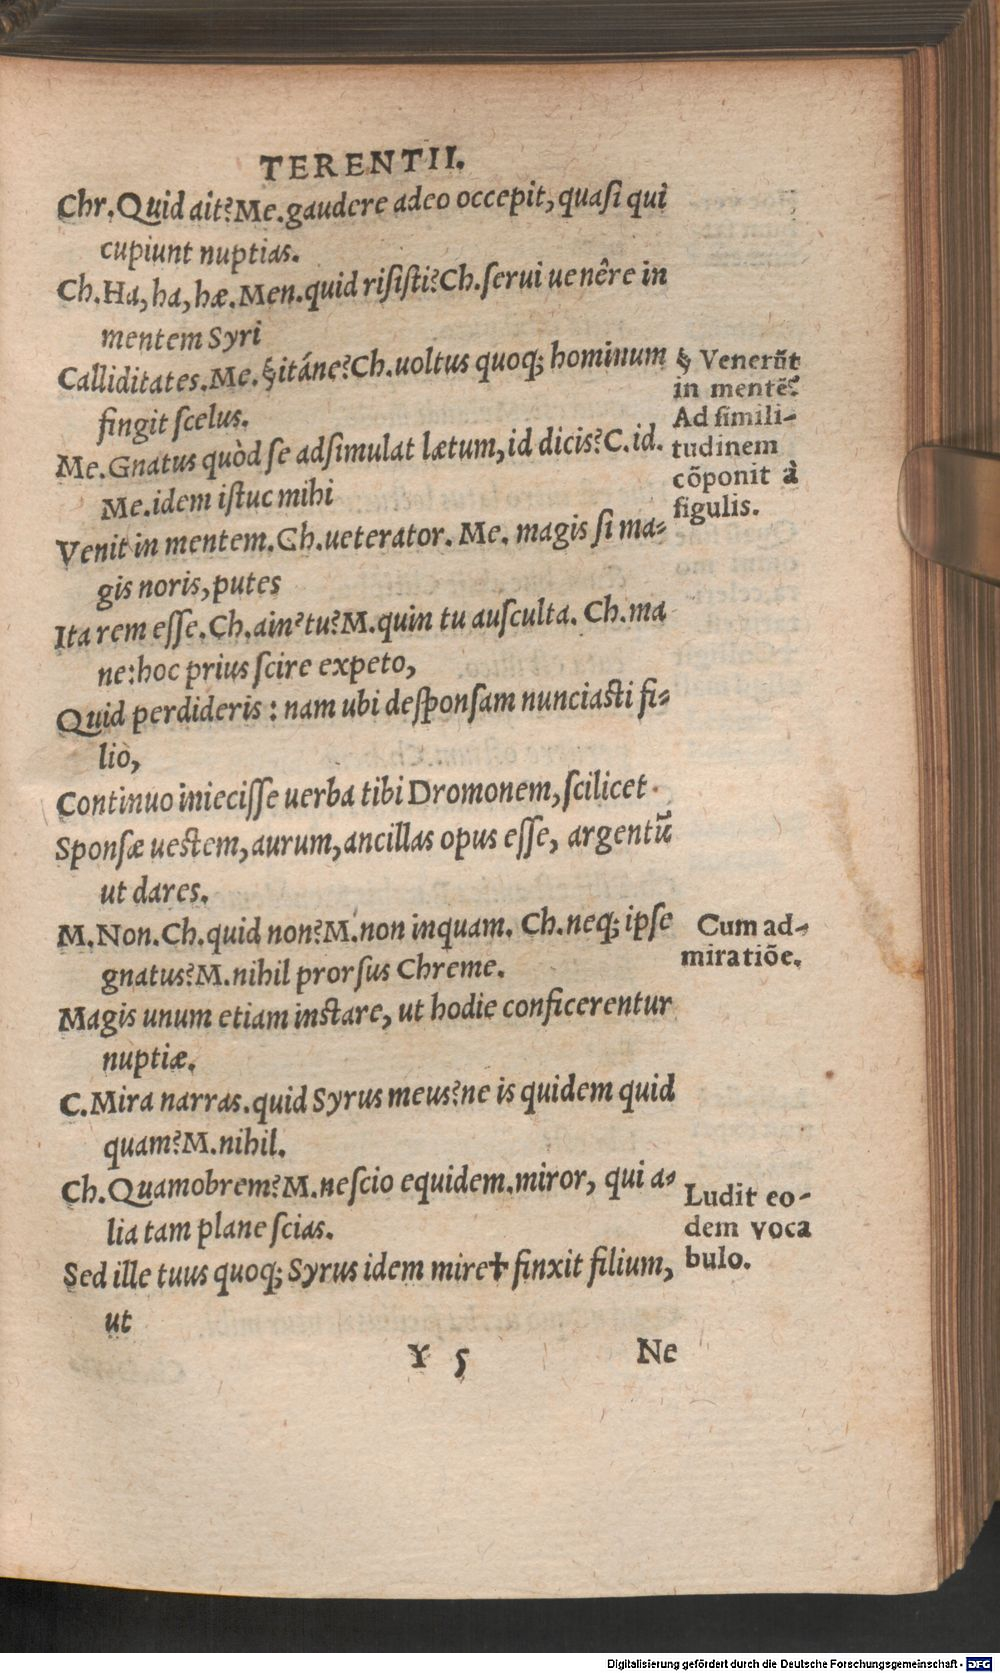 TERENTII.
Chr. Quid ait? Me. gaudere adeo occepit, quasi qui
cupiunt nuptias.
Ch. Ha, ha, hæ. Men. quid risisti? Ch. serui uenêre in
mentem Syri
Calliditates. Me. § itáne? Ch. uoltus quoq; hominum
fingit scelus.
Me. Gnatus quòd se adsimulat lætum, id dicis? C. id.
Me. idem istuc mihi
Venit in mentem. Ch. ueterator. Me. magis si ma-
gis noris, putes
Ita rem esse. Ch. ain' tu? M. quin tu ausculta. Ch. ma
ne: hoc prius scire expeto,
Quid perdideris: nam ubi desponsam nunciasti fi-
lio,
Continuo iniecisse uerba tibi Dromonem, scilicet
Sponsæ uestem, aurum, ancillas opus esse, argentũ
ut dares.
M. Non. Ch. quid non? M. non inquam. Ch. neq; ipse
gnatus? M. nihil prorsus Chreme.
Magis unum etiam instare, ut hodie conficerentur
nuptiæ.
C. Mira narras. quid Syrus meus? ne is quidem quid
quam? M. nihil.
Ch. Quamobrem? M. nescio equidem. miror, qui a-
lia tam plane scias.
Sed ille tuus quoq; Syrus idem mire ✝ finxit filium,
ut
Y 5 Ne
§ Venerũt
in mentẽ?
Ad simili-
tudinem
cõponit à
figulis.
Cum ad-
miratiõe.
Ludit eo-
dem voca
bulo.
Digitalisierung gefördert durch die Deutsche Forschungsgemeinschaft - DFG